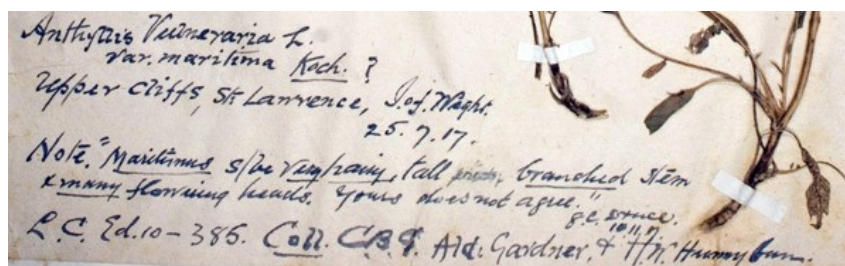 Anthyllis Vulneraria L.
var. maritima Koch. ?
Upper Cliffs, St. Lawrence, I. of Wight.
25. 7. 17.
Note. "Maritimus s/be very hairy, tall branched stem
& many flowering heads. Yours does not agree."
G.C. Druce.
10.11.17
L.C. Ed. 10 - 385. Coll. C.B.G. Ald. Gardner. & H.W. Hunnybun.